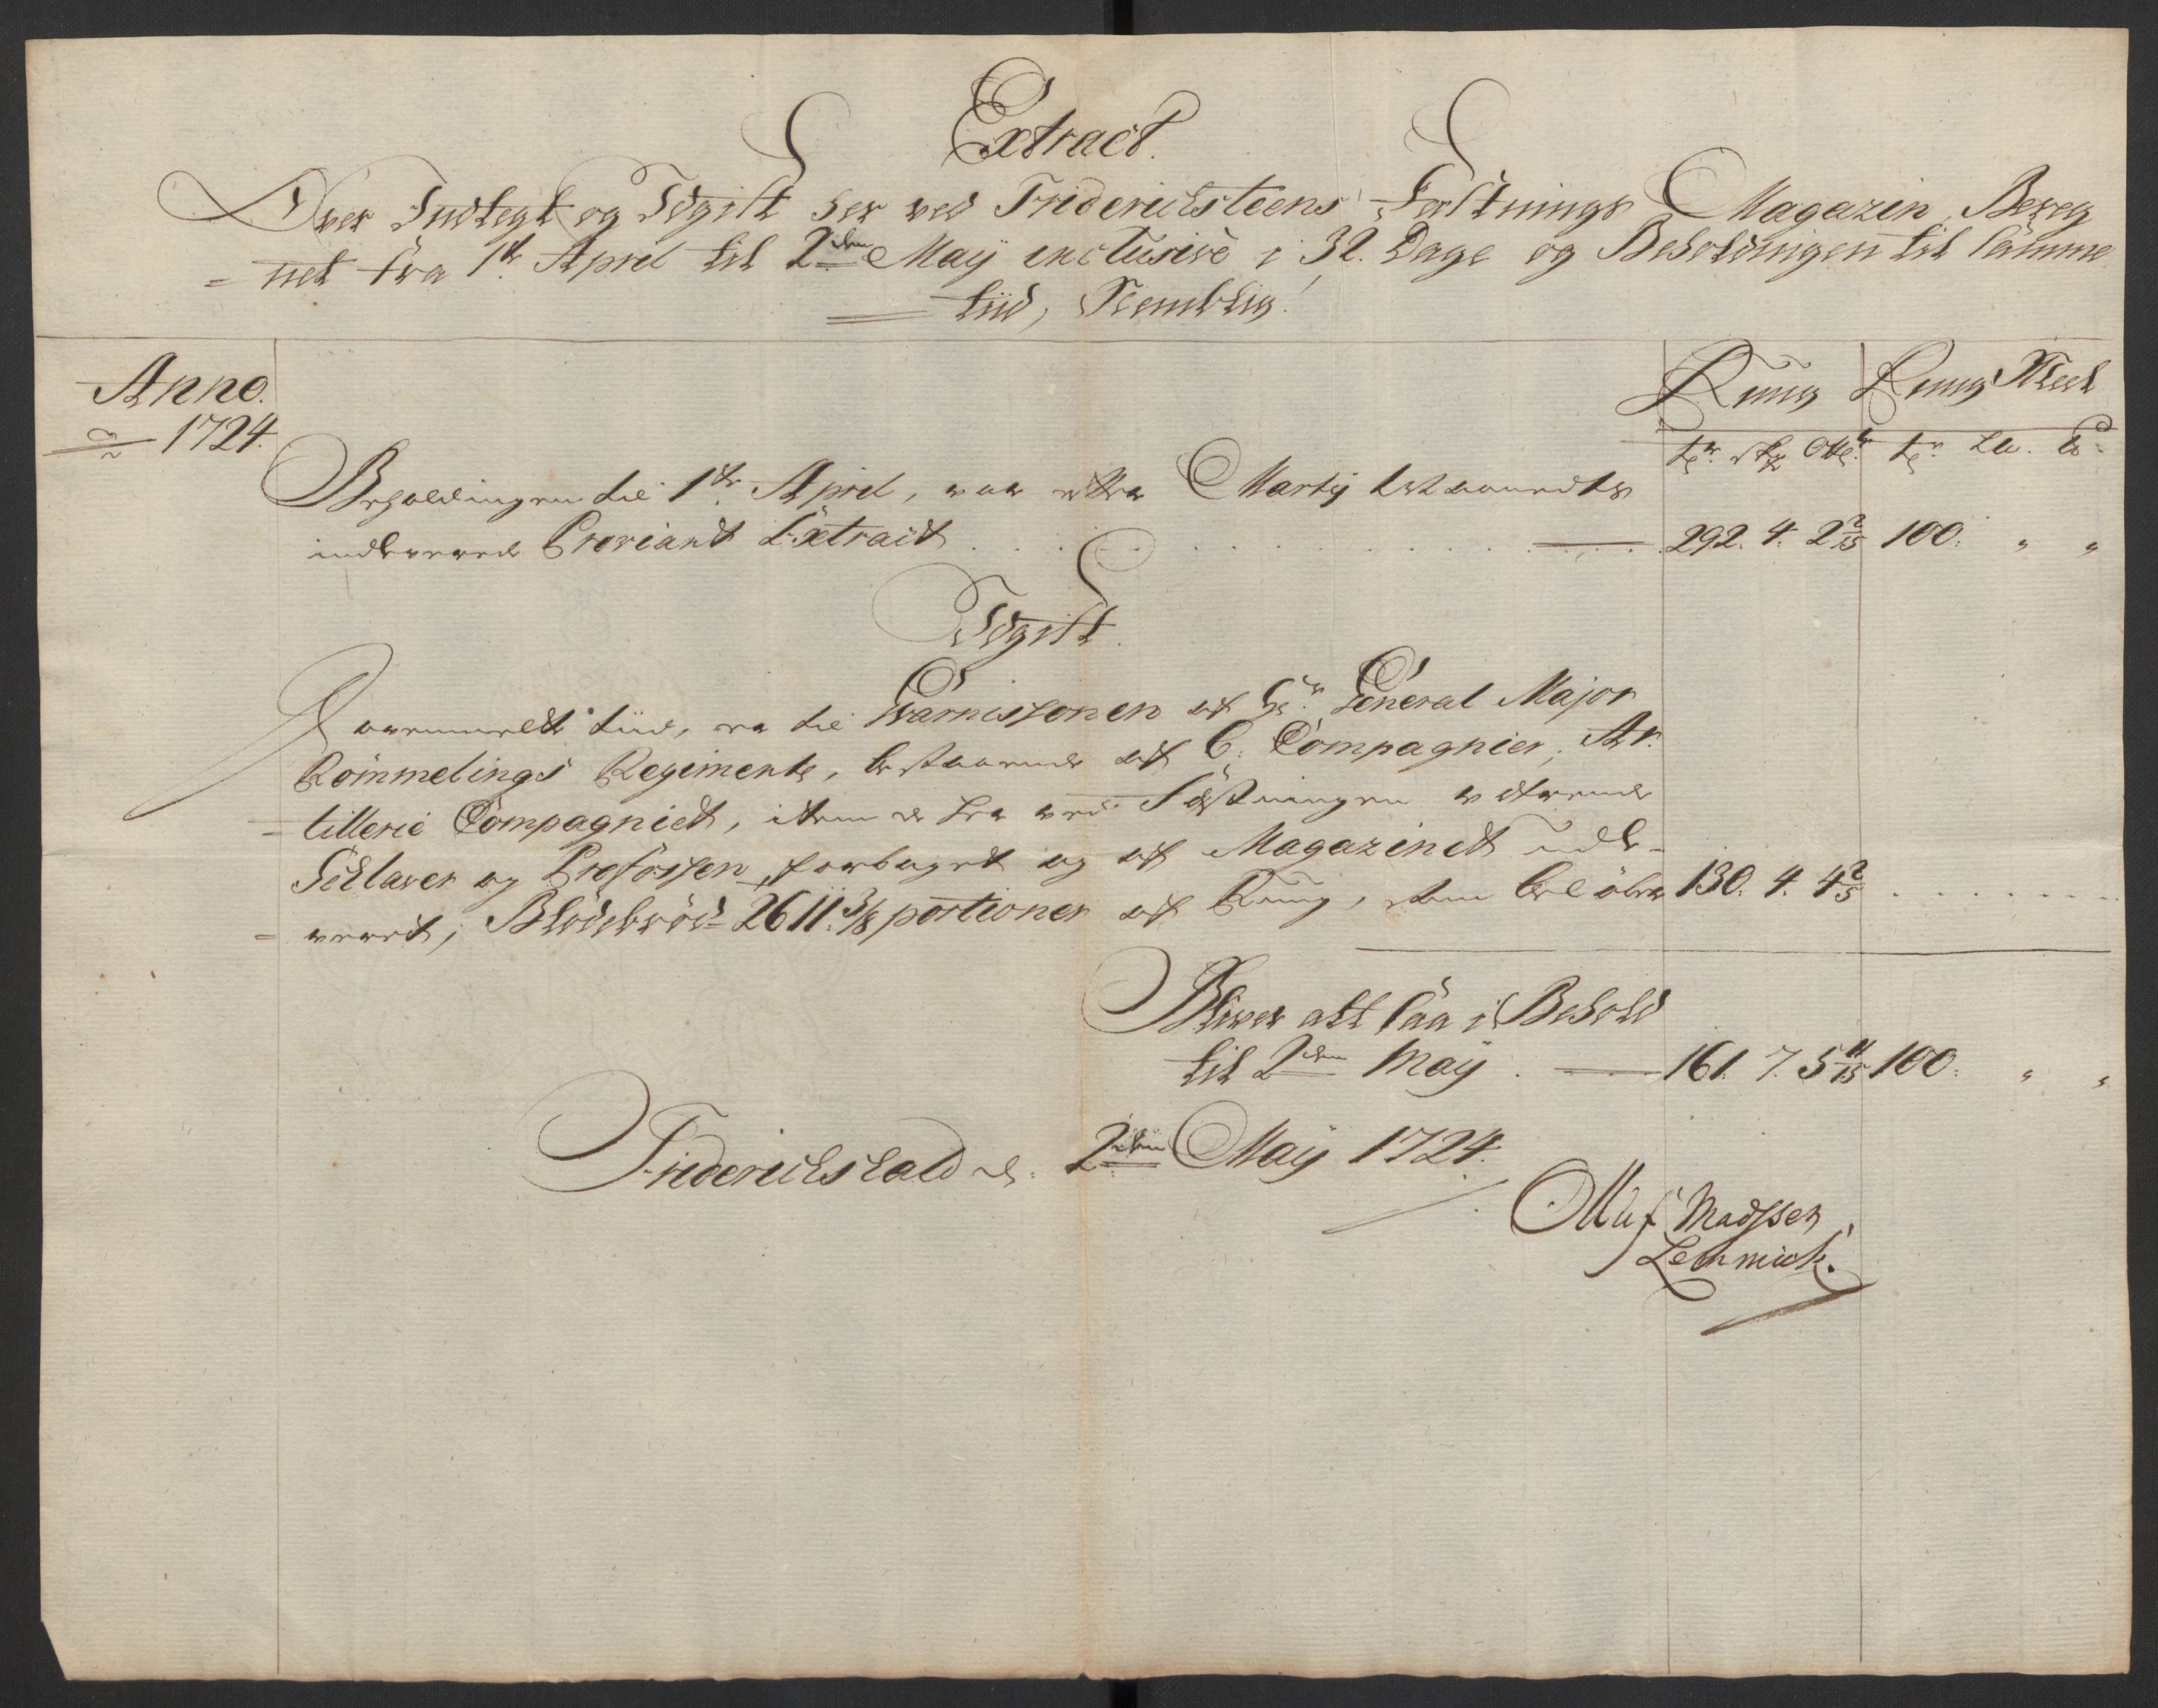 Extract.
Over Indtegt og Udgift her ved Friderichsteens Festnings Magazin, Bereg
= net fra 1te April til 2den Maÿ inclusive i 32. Dage og Beholdningen til samme
tiid, Nemblig
Anno. Rug Rug Meel
1724. tr. skp Ott: tr. Lb. lb:
Beholdningen til 1te April, var efter Martÿ Maanedts
indleverede Proviant Extract 292. 4. 2 2/15 100: " "
Udgift.
I ovenmeldte tiid, er til Guarnissonen af Hr. General Major
Römmelings Regimente, bestaaende af 6. Compagnier, Ar
= tillerie Compagniet, item de her ved Fæstningen værende
Sclaver og Profossen, forbaget og af Magazinet udle-
= veret, Blödebröd 2611. 3/8 portioner af Rug, som belöber 130. 4. 4 2/5
Bliver alt saa i Behold
til 2den Maÿ 161. 7. 5 11/15 100: " "
Friderichshald d. 2den Maÿ 1724.
Olluf Madssen
Lemmich.